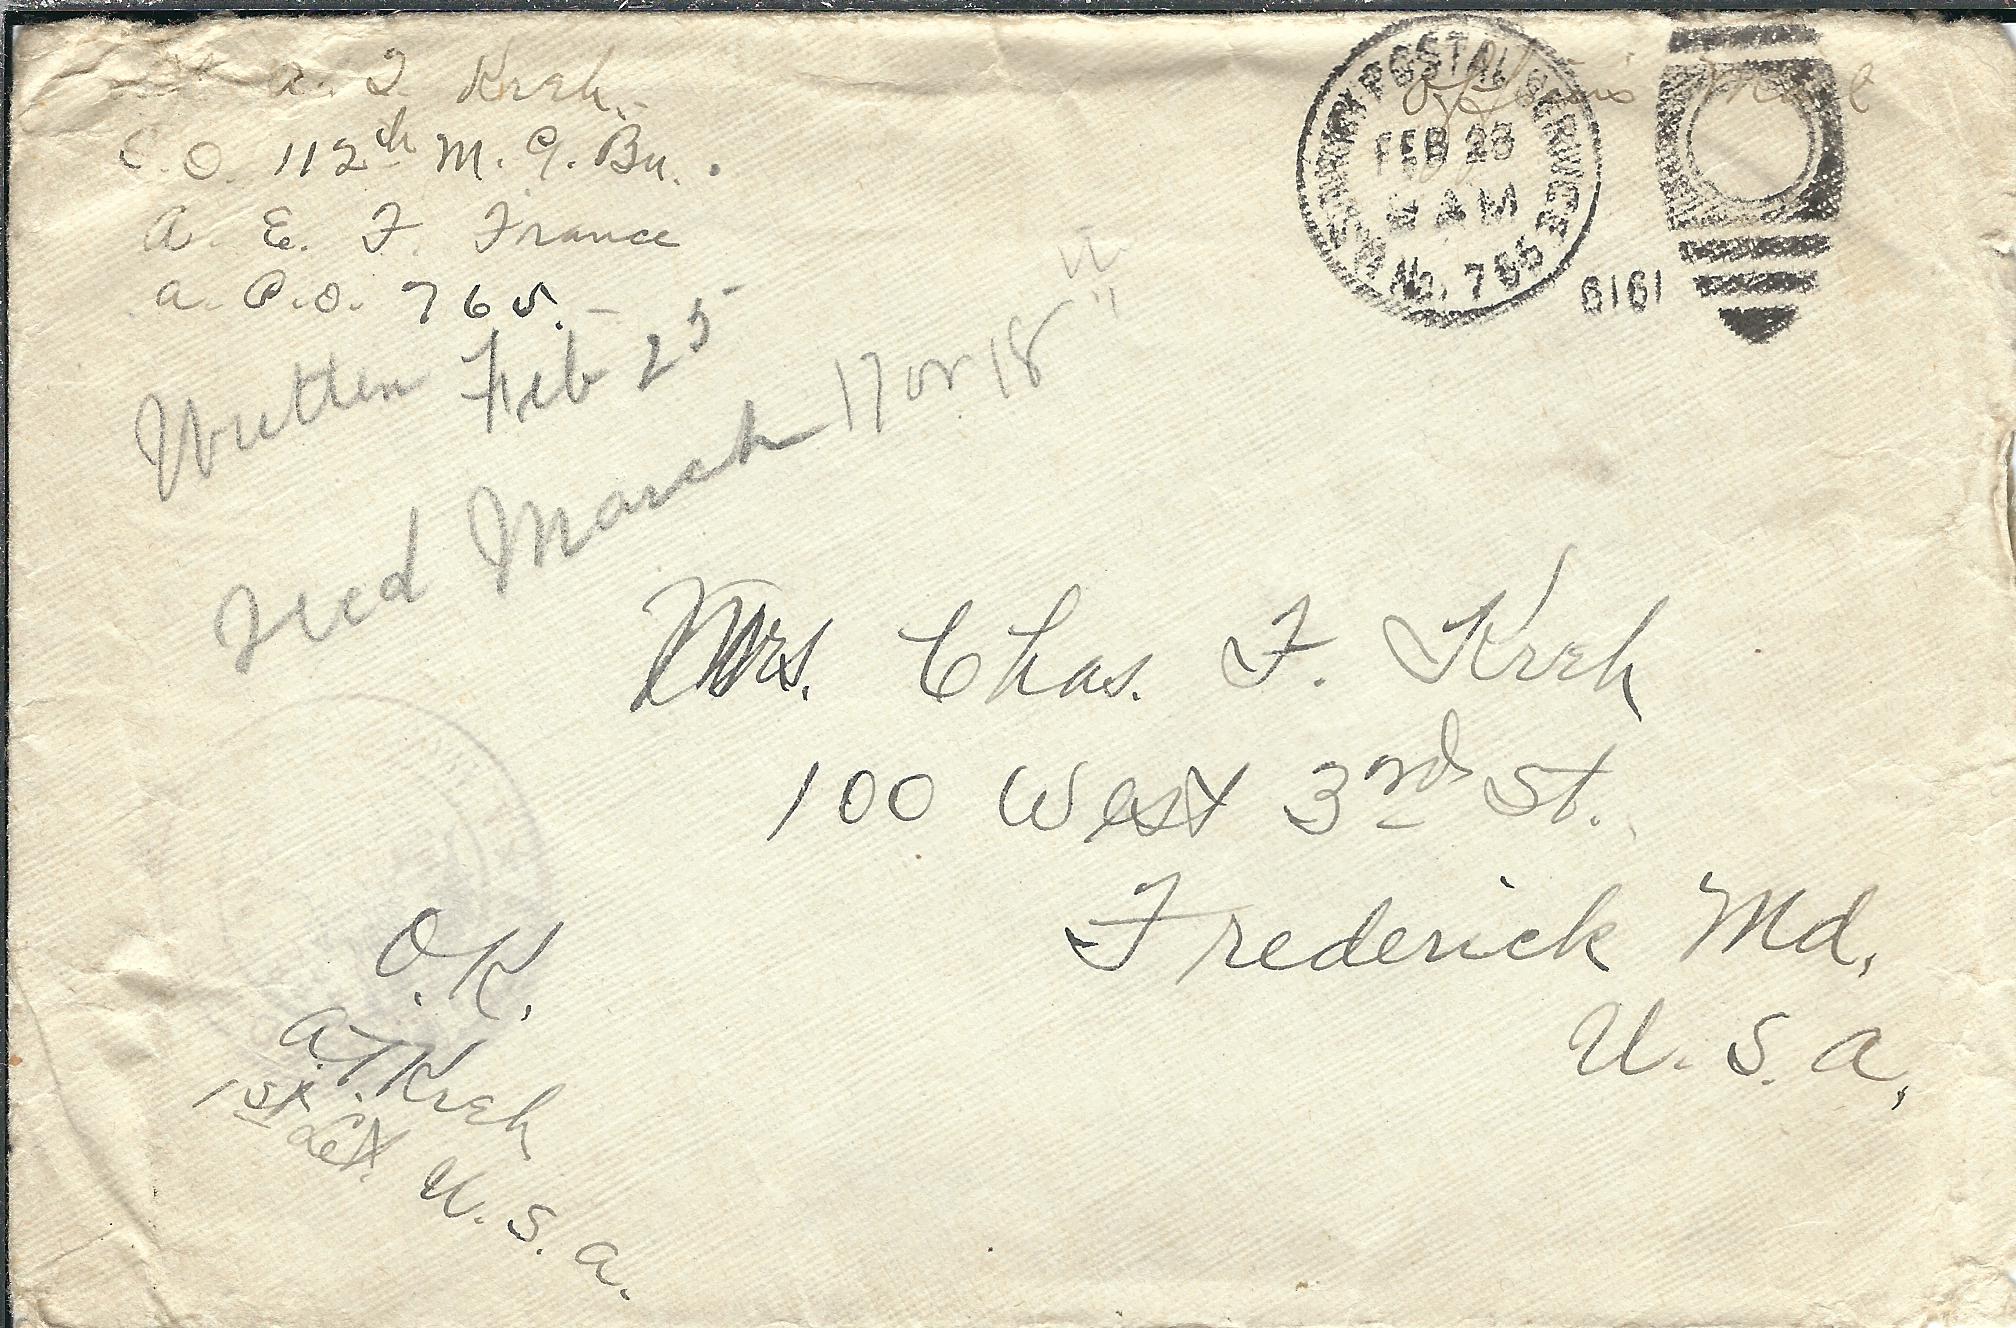 A. T. Kreh.
C. O. 112th M. G. Bn.
A. E. F. France
A. P. O. 765.
MILITARY POSTAL SERVICE
FEB 28
AM
No. 765
1919
Officer's Mail
Written Feb 25
Recd March 17 or 18"
Mrs. Chas. F. Kreh
100 West 3rd St.
Frederick Md.
U. S. A.
O.K.
A.T. Kreh
1st Lt. U. S. A.